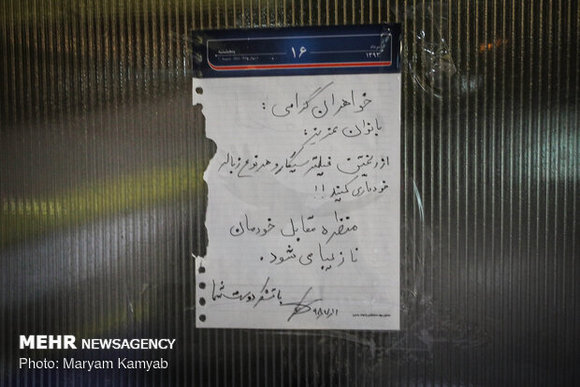 ۱۶
۱۳۹۲
خواهران گرامی :
بانوان عزیز :
از ریختن فیلتر سیگار و هر نوع زباله
خودداری کنید !!
منظره مقابل خودمان
نازیبا می شود .
با تشکر دوست شما
MEHR NEWSAGENCY
Photo: Maryam Kamyab